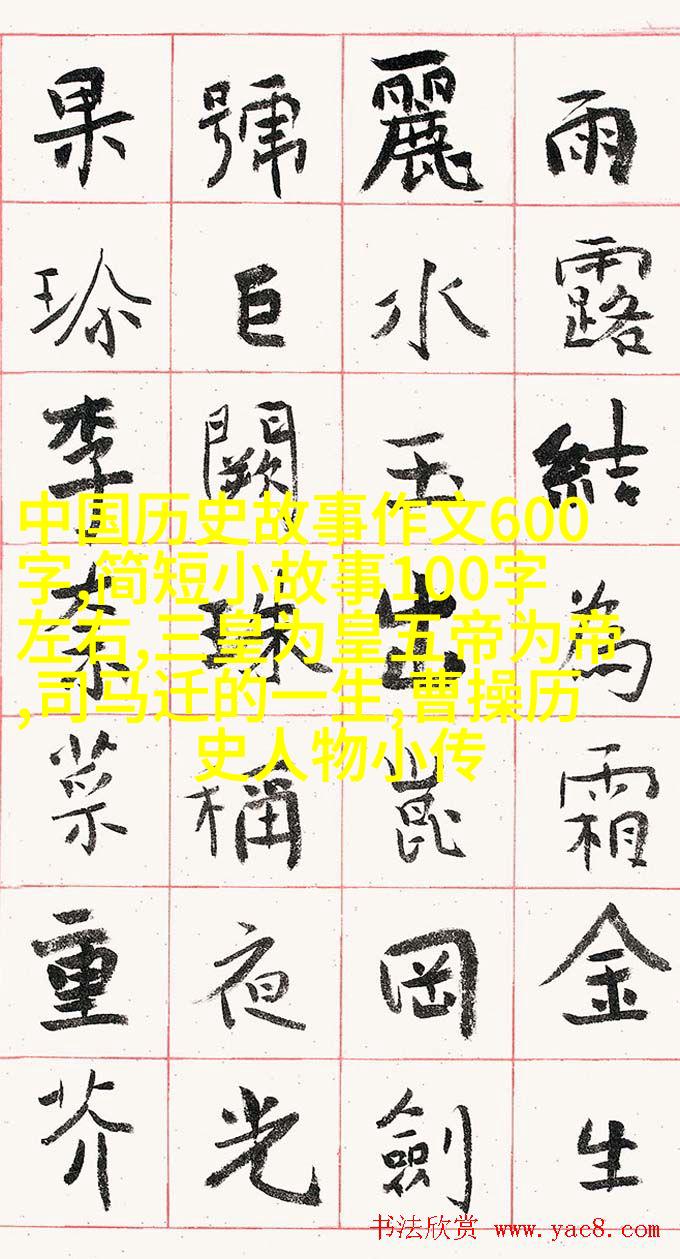 雨露結為霜金生
麗水玉出崑岡劍
號巨闕珠稱夜光
果珍李柰菜重芥
中国历史故事作文600
字,简短小故事100字
左右,三皇为皇五帝为帝
,司马迁的一生,曹操历
史人物小传
书法欣赏 www.yac8.com